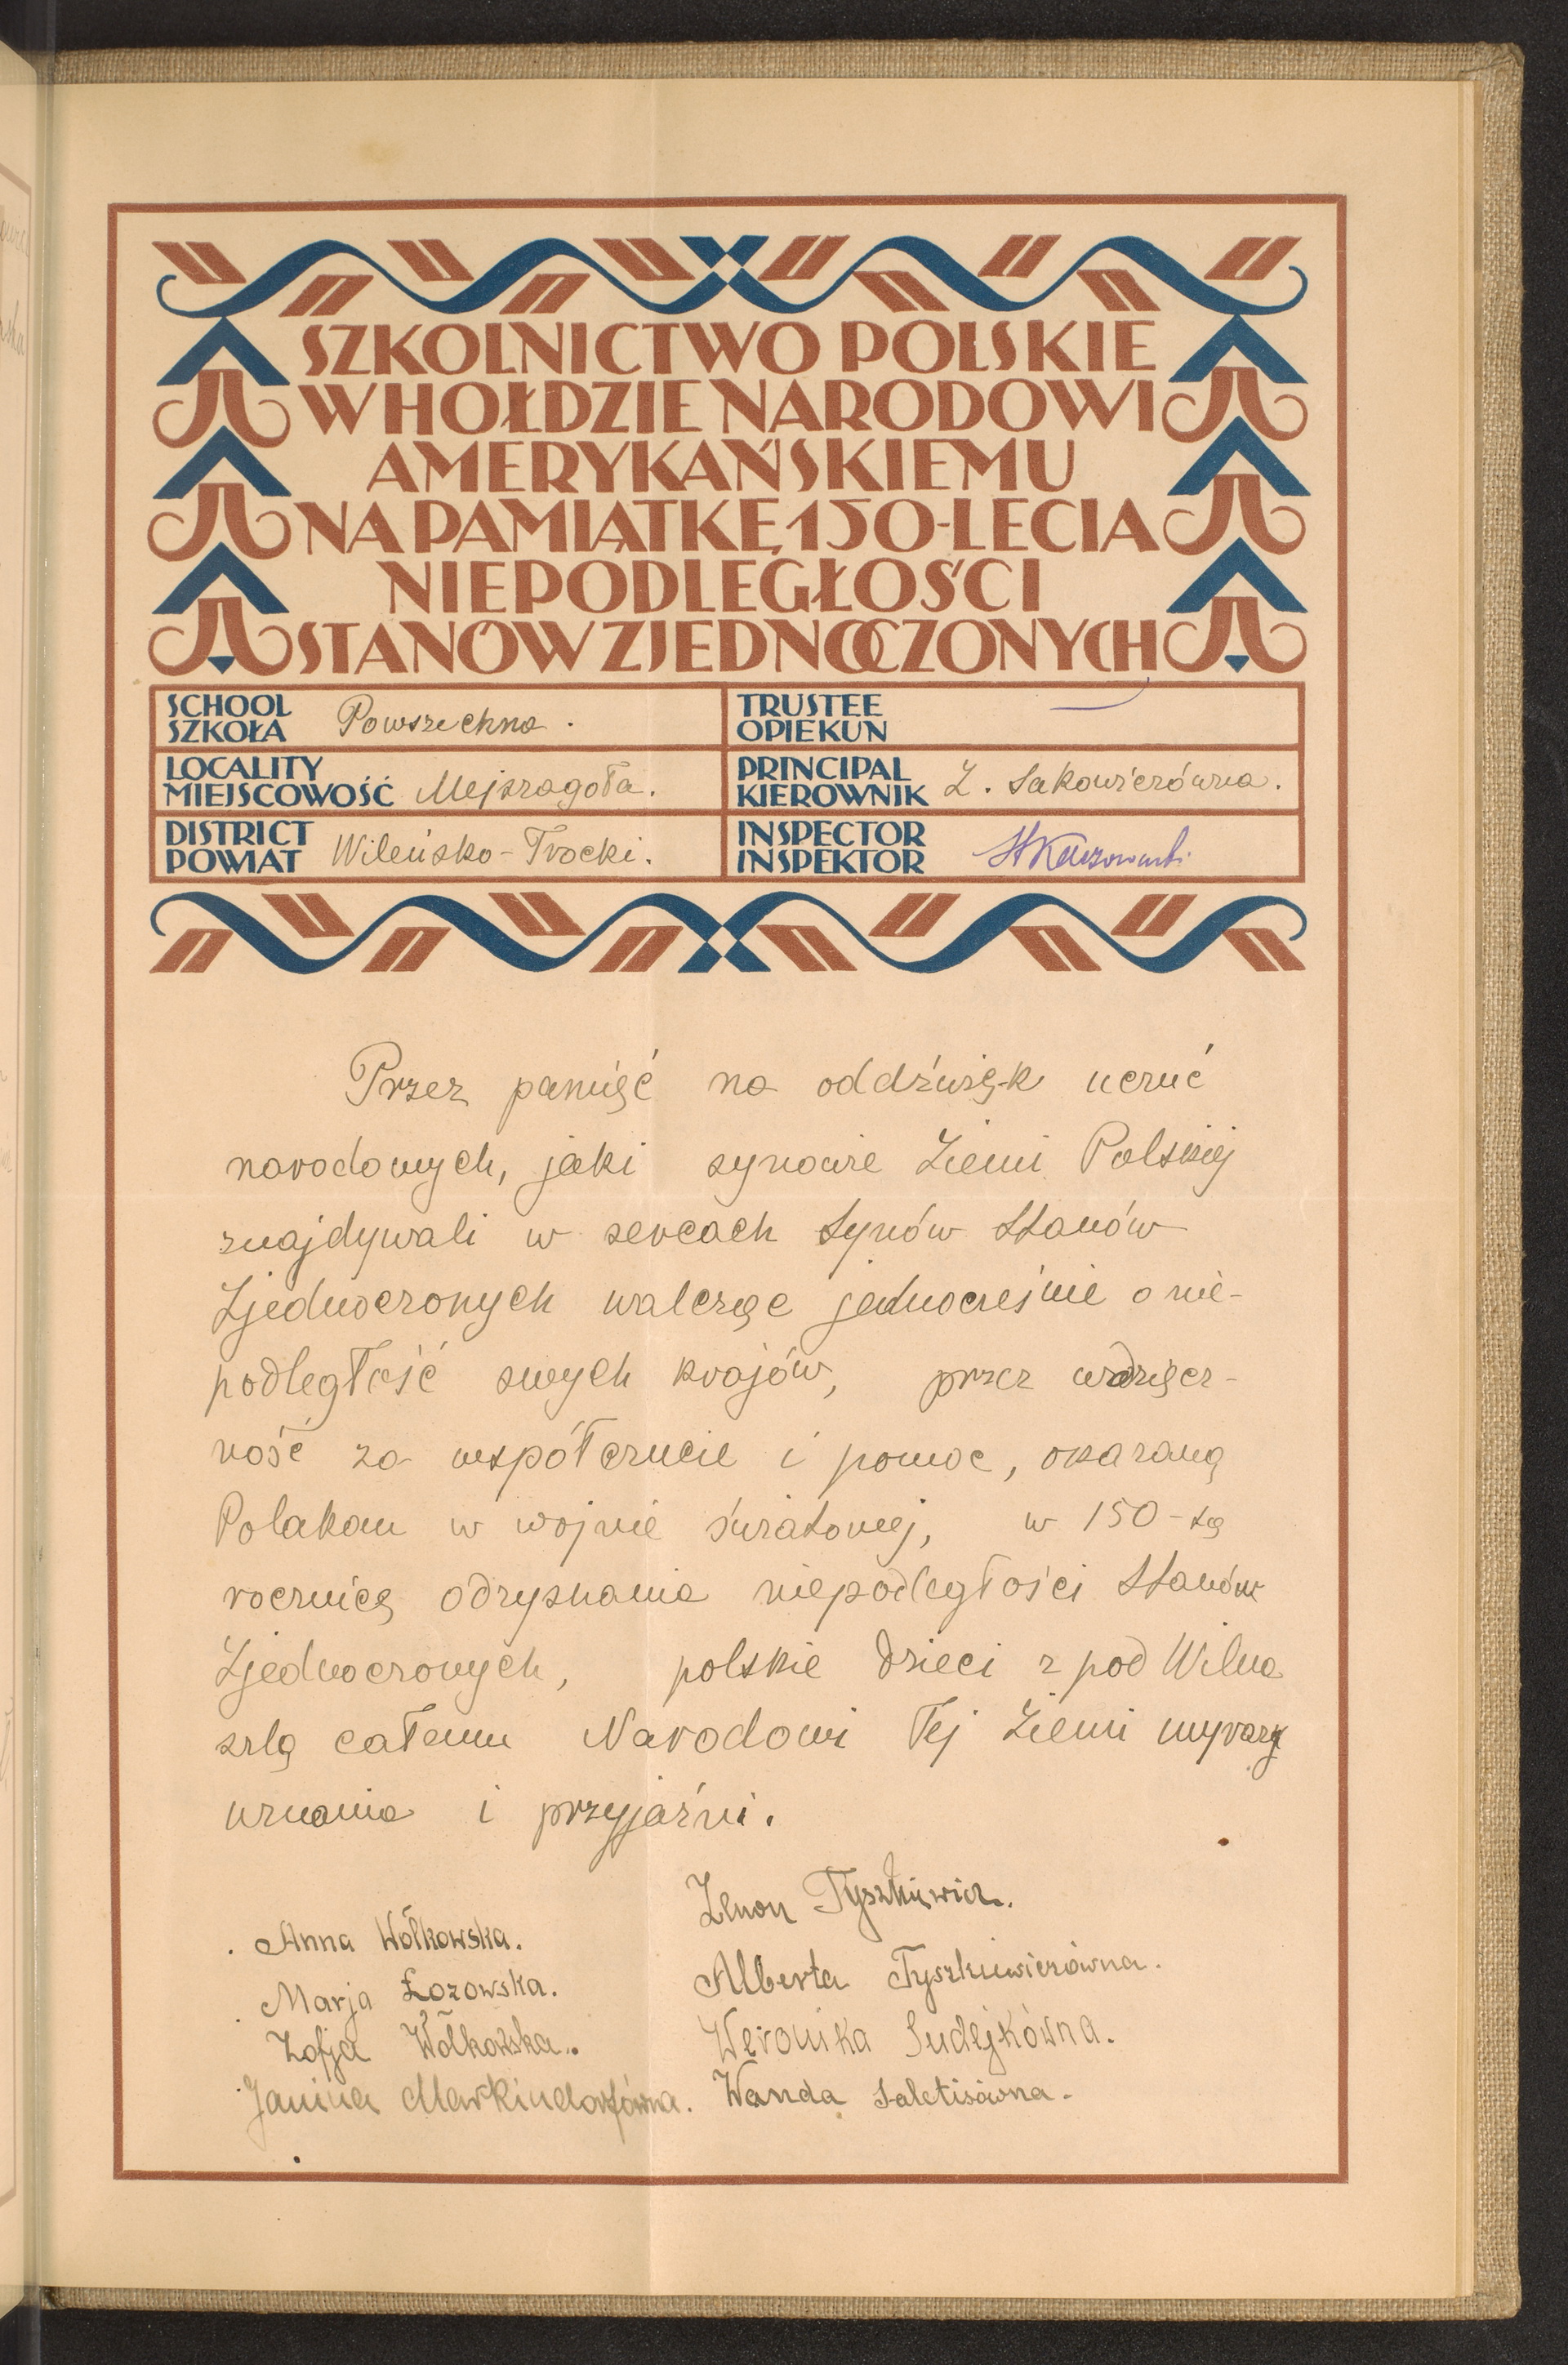 SZKOLNICTWO POLSKIE
W HOŁDZIE NARODOWI
AMERYKAŃSKIEMU
NA PAMIĄTKĘ 150-LECIA
NIEPODLEGŁOŚCI
STANÓW ZJEDNOCZONYCH
SCHOOL
SZKOŁA Powszechna.
TRUSTEE
OPIEKUN
LOCALITY
MIEJSCOWOŚĆ Mejszagoła.
PRINCIPAL
KIEROWNIK Z. Sakowiczówna.
DISTRICT
POWIAT Wileńsko-Trocki.
INSPECTOR
INSPEKTOR
Przez pamięć na oddźwięk uczuć
narodowych, jaki synowie Ziemi Polskiej
znajdywali w sercach Synów Stanów
Zjednoczonych walcząc jednocześnie o nie-
podległość swych krajów, przez wdzięcz-
ność za współczucie i pomoc, okazaną
Polakom w wojnie światowej, w 150-tą
rocznicę odzyskania niepodległości Stanów
Zjednoczonych, polskie dzieci z pod Wilna
szlą całemu Narodowi Tej Ziemi wyrazy
uznania i przyjaźni.
Zenon Tyszkiewicz.
Anna Wołkowska.
Alberta Tyszkiewiczówna.
Marja Łozowska.
Weronika Sudejkówna.
Zofja Wołkowska.
Wanda Saletisówna.
Janina Markindorfówna.